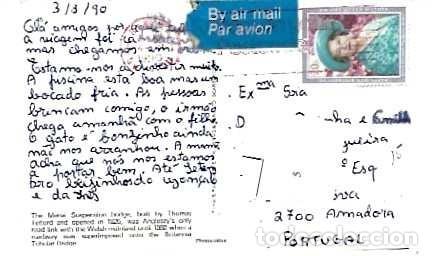 3/8/90
Olá amigos por aqui tudo
a viagem foi
mas chegamos em
Estamos-nos a divertir muito
A piscina está boa mas um
bocado fria. As pessoas
brincam comigo, o irmão
chega amanhã com o filho
O gato é bonzinho ainda
não nos arranhou. A mamã
acha que nós nos estamos
a portar bem. Até Setem
bro beijinhos do
e da Inês
The Menai Suspension bridge, built by Thomas
Telford and opened in 1826, was Anglesey's only
road link with the Welsh mainland until 1980 when a
roadway was superimposed onto the Britannia
Tubular Bridge.
By air mail
Par avion
Ex Sra
D nha e
Esq
2700 Amadora
PORTUGAL
todocoleccion